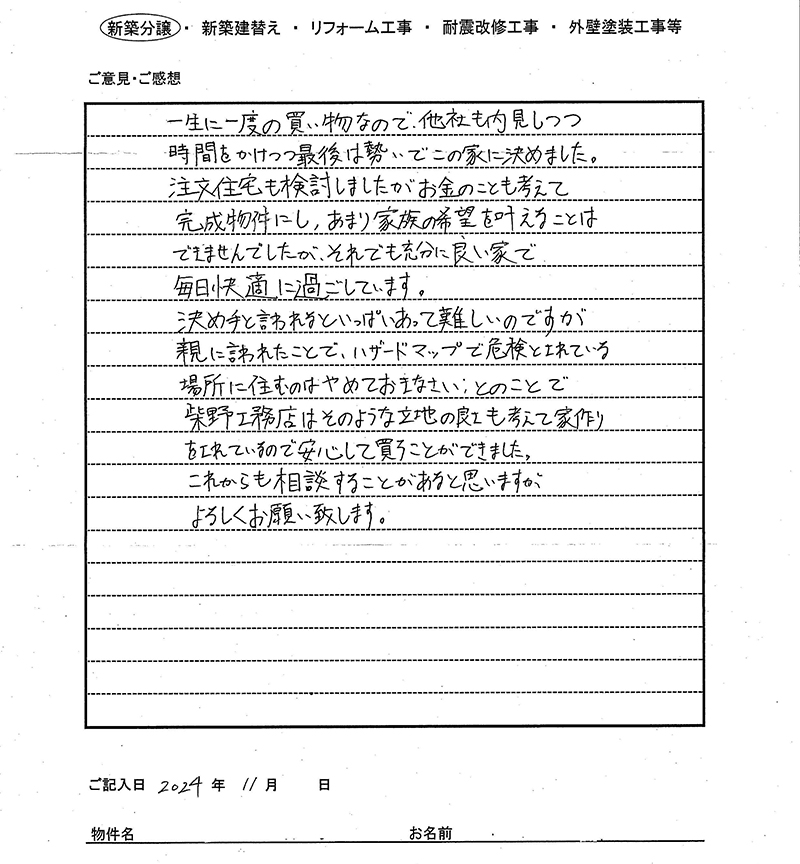 新築分譲 ・ 新築建替え ・ リフォーム工事 ・ 耐震改修工事 ・ 外壁塗装工事等
ご意見・ご感想
一生に一度の買い物なので、他社も内見しつつ
時間をかけつつ最後は勢いでこの家に決めました。
注文住宅も検討しましたがお金のことも考えて
完成物件にし、あまり家族の希望を叶えることは
できませんでしたが、それでも充分に良い家で
毎日快適に過ごしています。
決め手と言われるといっぱいあって難しいのですが
親に言われたことで、ハザードマップで危険とされている
場所に住むのはやめておきなさい、とのことで
柴野工務店はそのような立地の良さも考えて家作り
をされているので安心して買うことができました。
これからも相談することがあると思いますが
よろしくお願い致します。
ご記入日 2024 年 11 月 日
物件名 お名前